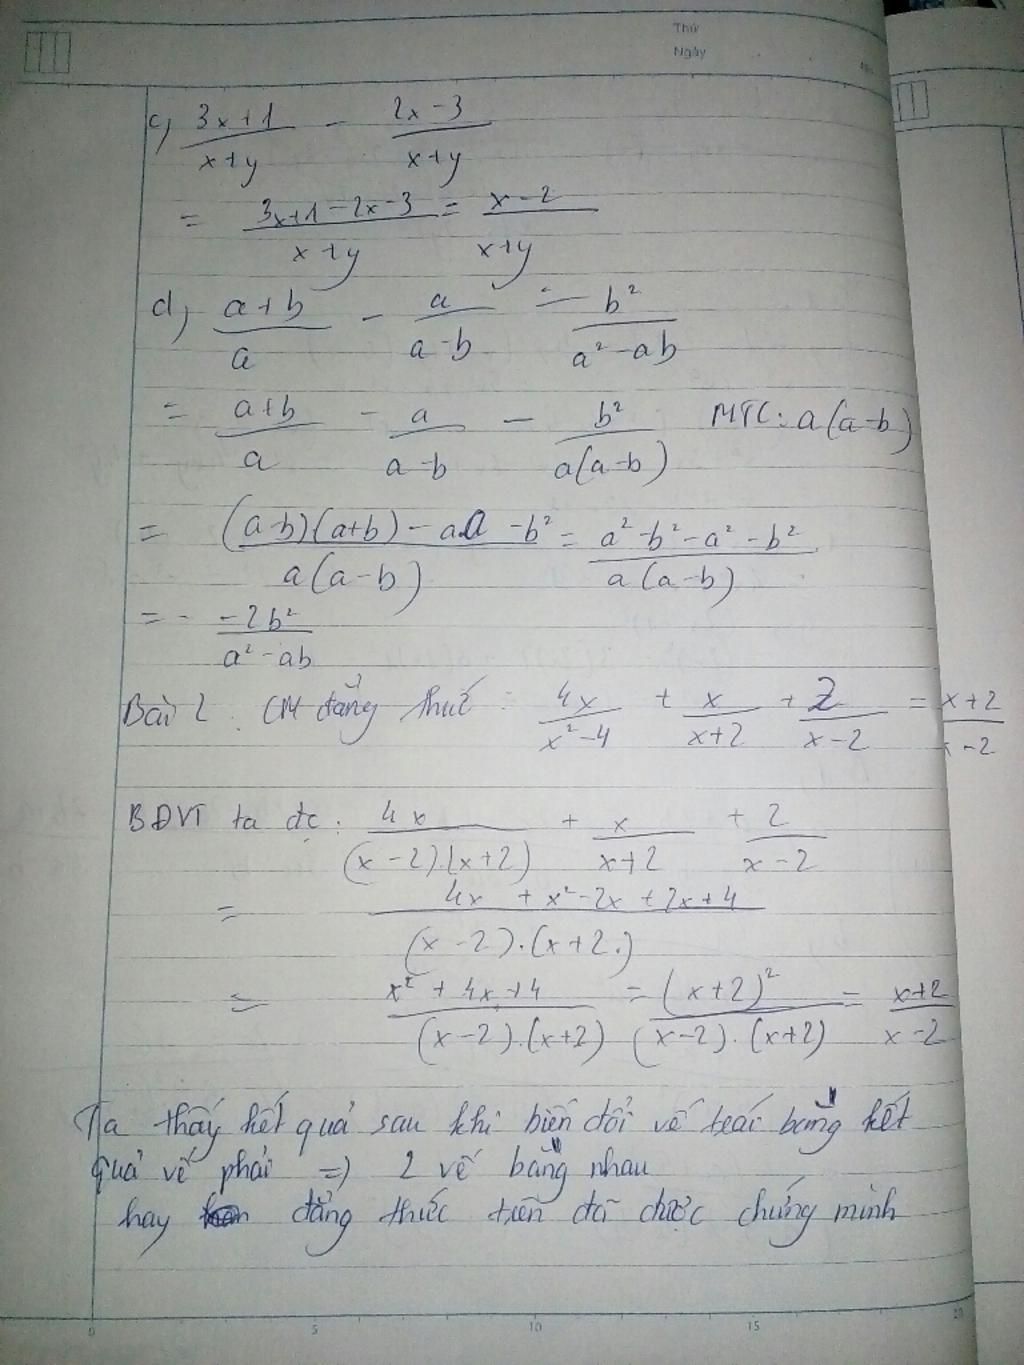 Thứ
Ngày
c) (3x+1)/(x+y) - (2x-3)/(x+y)
= (3x+1-2x-3)/(x+y) = (x-2)/(x+y)
d) (a+b)/a - a/(a-b) = b²/(a²-ab)
= (a+b)/a - a/(a-b) - b²/(a(a-b)) MTC: a(a-b)
= ((a-b)(a+b) - a.a - b²)/(a(a-b)) = (a²-b²-a²-b²)/(a(a-b))
= - (-2b²)/(a²-ab)
Bài 2. CM đẳng thức: 4x/(x²-4) + x/(x+2) + 2/(x-2) = (x+2)/(x-2)
BĐVT ta đc: 4x/((x-2).(x+2)) + x/(x+2) + 2/(x-2)
= (4x + x²-2x+2x+4)/((x-2).(x+2.))
= (x²+4x+4)/((x-2).(x+2)) = (x+2)²/((x-2).(x+2)) = (x+2)/(x-2)
Ta thấy kết quả sau khi biến đổi vế trái bằng kết
quả vế phải => 2 vế bằng nhau
hay đẳng thức trên đã được chứng minh
0 5 10 15 20